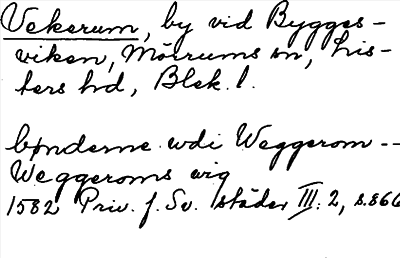 Vekerum, by vid Bygges-
viken, Mörrums sn, Lis-
ters hd, Blek. l.
bønderne udi Weggerom --
Weggeroms wig
1582 Priv. f. Sv. städer III: 2, s. 866